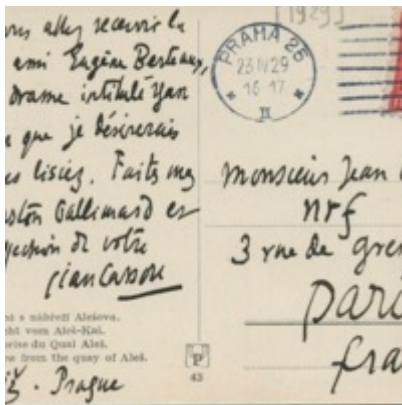 [1929]
vous allez recevoir la
ami Eugène Bestaux,
drame intitulé Yan
que je désirerais
lisiez. Faites mes
Gaston Gallimard et
de votre
Jean Cassou
nábřeží Alešova.
cht vom Aleš-Kai.
prise du Quai Aleš.
ew from the quay of Aleš.
Prague
PRAHA 25
23 IV 29
16-17
II
Monsieur Jean
nrf
3 rue de gre
Pari
fra
P
43